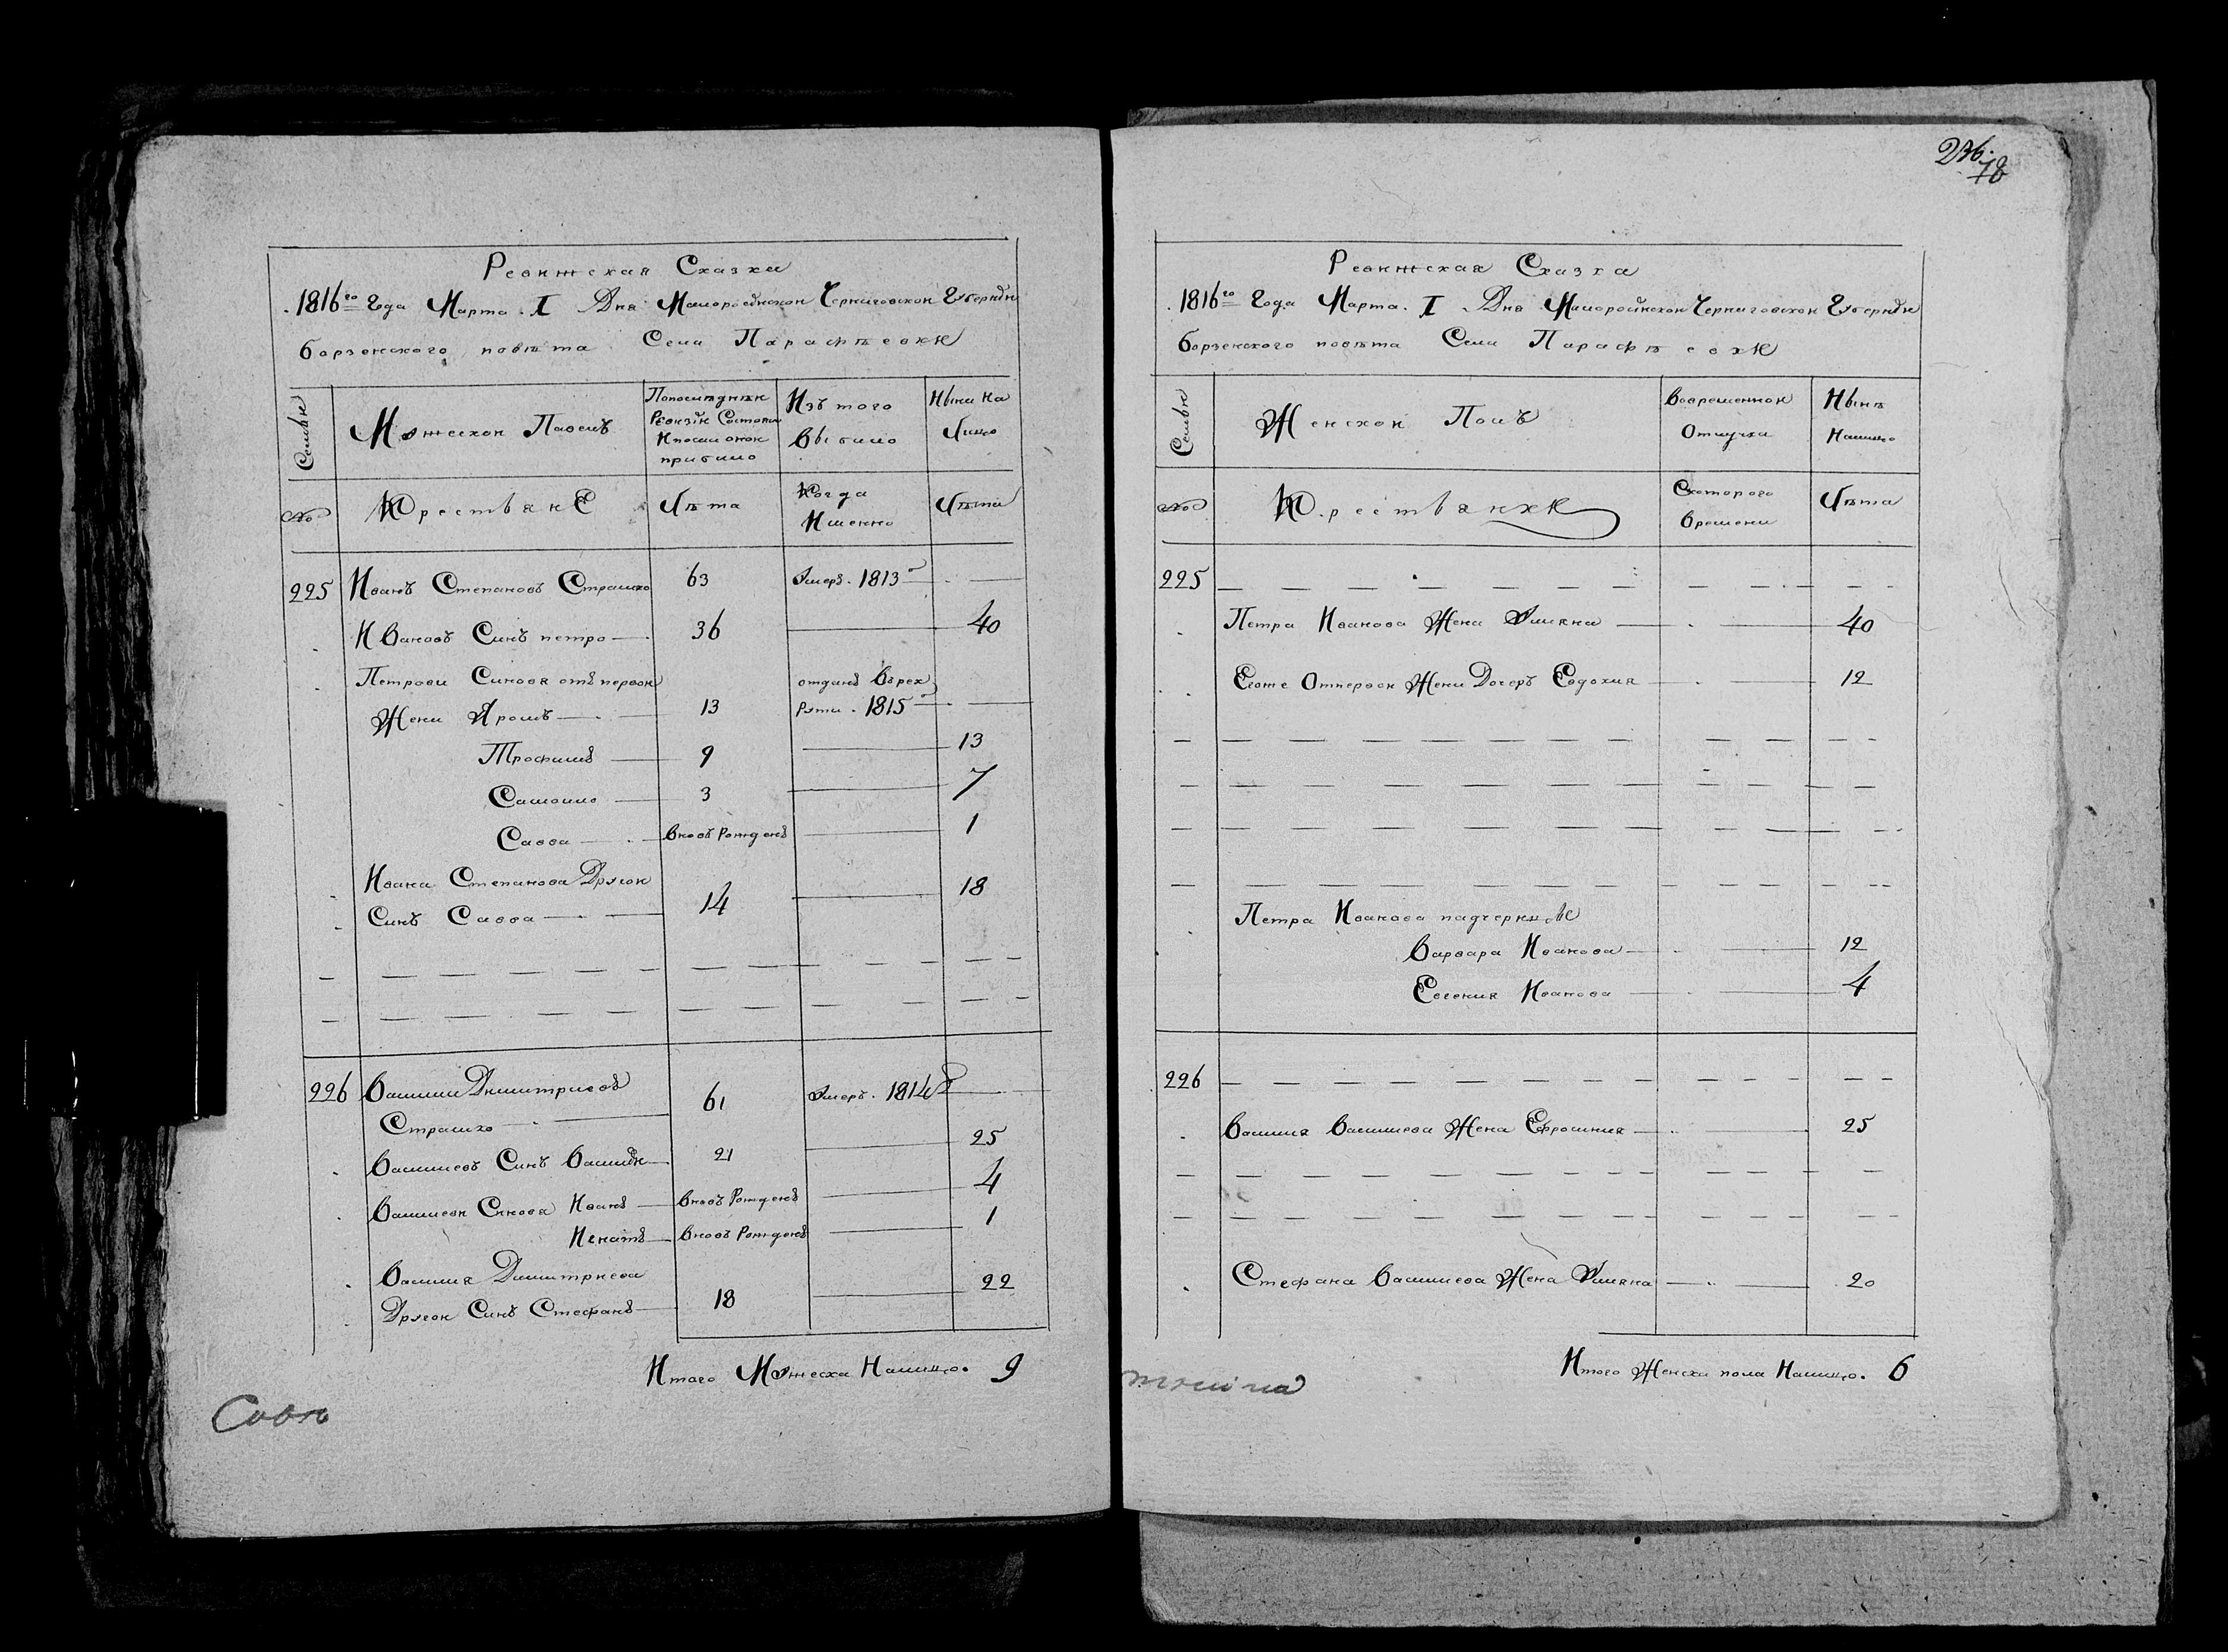 Ревижская Сказка
1816го Года Марта. I Дня Малоросійской Черниговской Губерніи
борзенского повѣта Села Парафѣевки
Семьи
Мужеской Полъ
Попоследней
Ревзіи Состояло
Ипосли оной
прибило
Изъ того
Выбило
Ныни На
Лицо
№
Крестьяне
Лѣта
Когда
Именно
Лѣта
225 Иванъ Степановъ Страшко 63 Умеръ. 1813
Ивановъ Синъ петро 36 40
Петрови Синовя отъ первой отданъ Врек
Жени Яромъ 13 Рути. 1815
Трофимъ 9 13
Самоило 3 7
Савва Вновь Рожденъ 1
Ивана Степанова Другой
Синъ Савва 14 18
226 Василий Димитриевъ 61 Умеръ. 1814
Страшко
Васильевъ Синъ Василій 21 25
Васильеви Синовя Иванъ Вновь Рожденъ 4
Игнатъ Вновь Рожденъ 1
Василия Димитриева
Другой Синъ Стефанъ 18 22
Итого Мужеска Налицо. 9
236.
78
Ревижская Сказка
1816го Года Марта. I Дня Малоросійской Черниговской Губерніи
борзенского повѣта Села Парафѣевки
Семьи
Женской Полъ
Вовременной
Отлучки
Нынѣ
Налицо
№
Крестьянки
Скоторого
Времени
Лѣта
225
Петра Иванова Жена Уляна 40
Егоже Отпервой Жени Дочеръ Евдокия 12
Петра Иванова падчерицы
Варвара Иванова 12
Евгения Иванова 4
226
Василия Васильева Жена Ефросиния 25
Стефана Васильева Жена Уляна 20
Итого Женска пола Налицо. 6